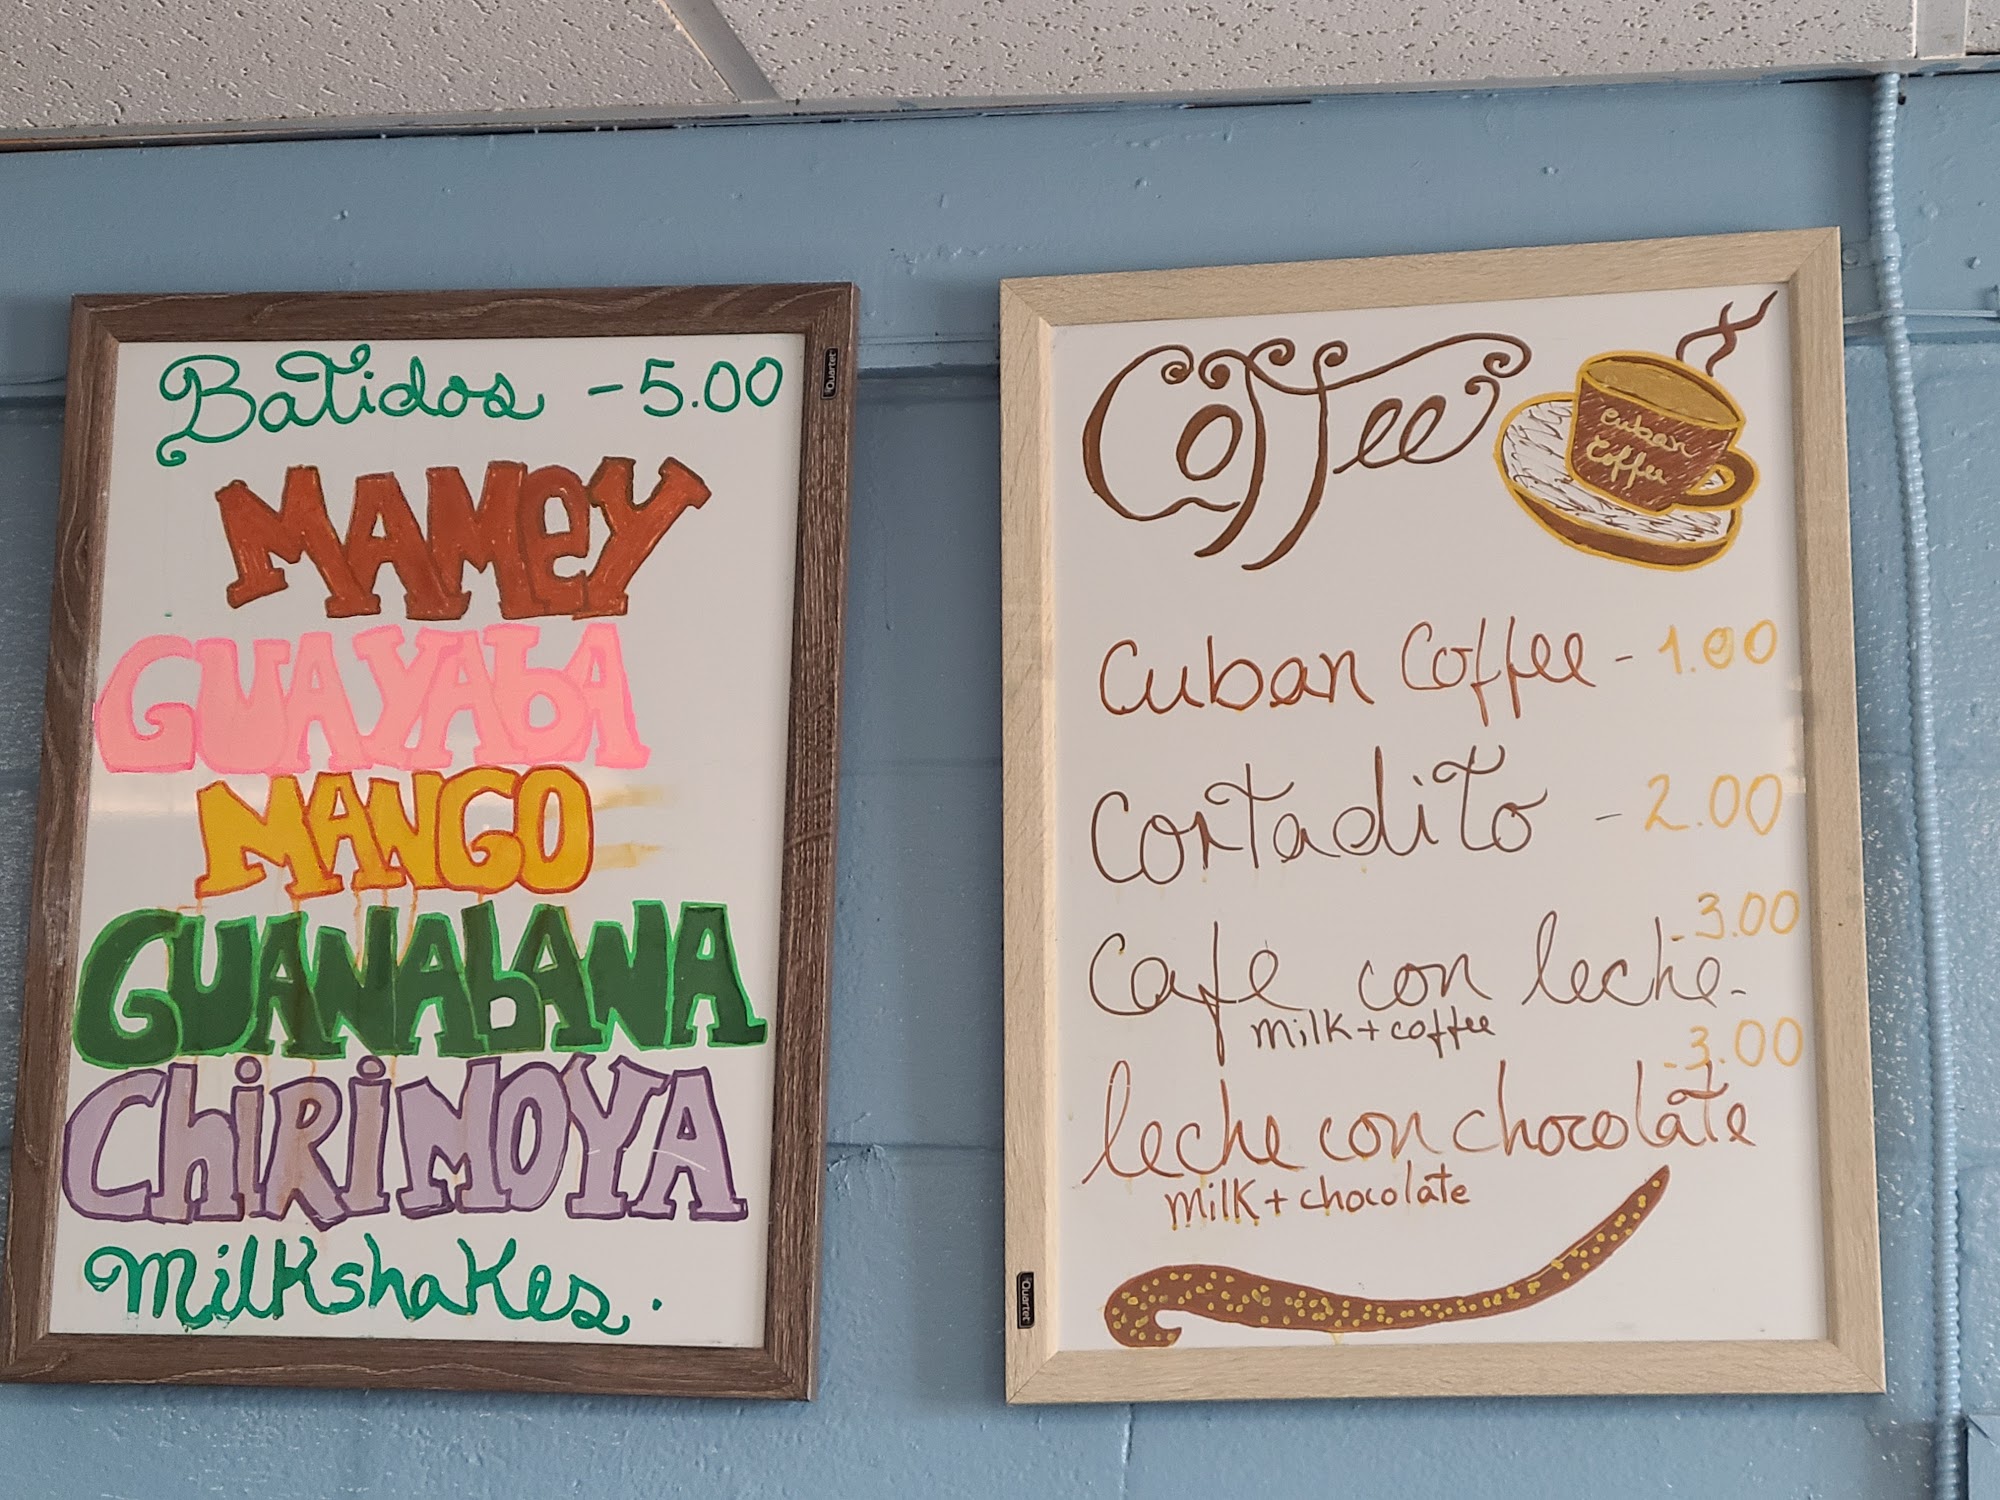 Batidos - 5.00
MAMEY
GUAYABA
MANGO
GUANABANA
CHIRIMOYA
Milkshakes.
Quartet
Coffee
Cuban
Coffee
Cuban Coffee - 1.00
Cortadito - 2.00
Cafe con leche - 3.00
milk + coffee
leche con chocolate - 3.00
milk + chocolate
Quartet